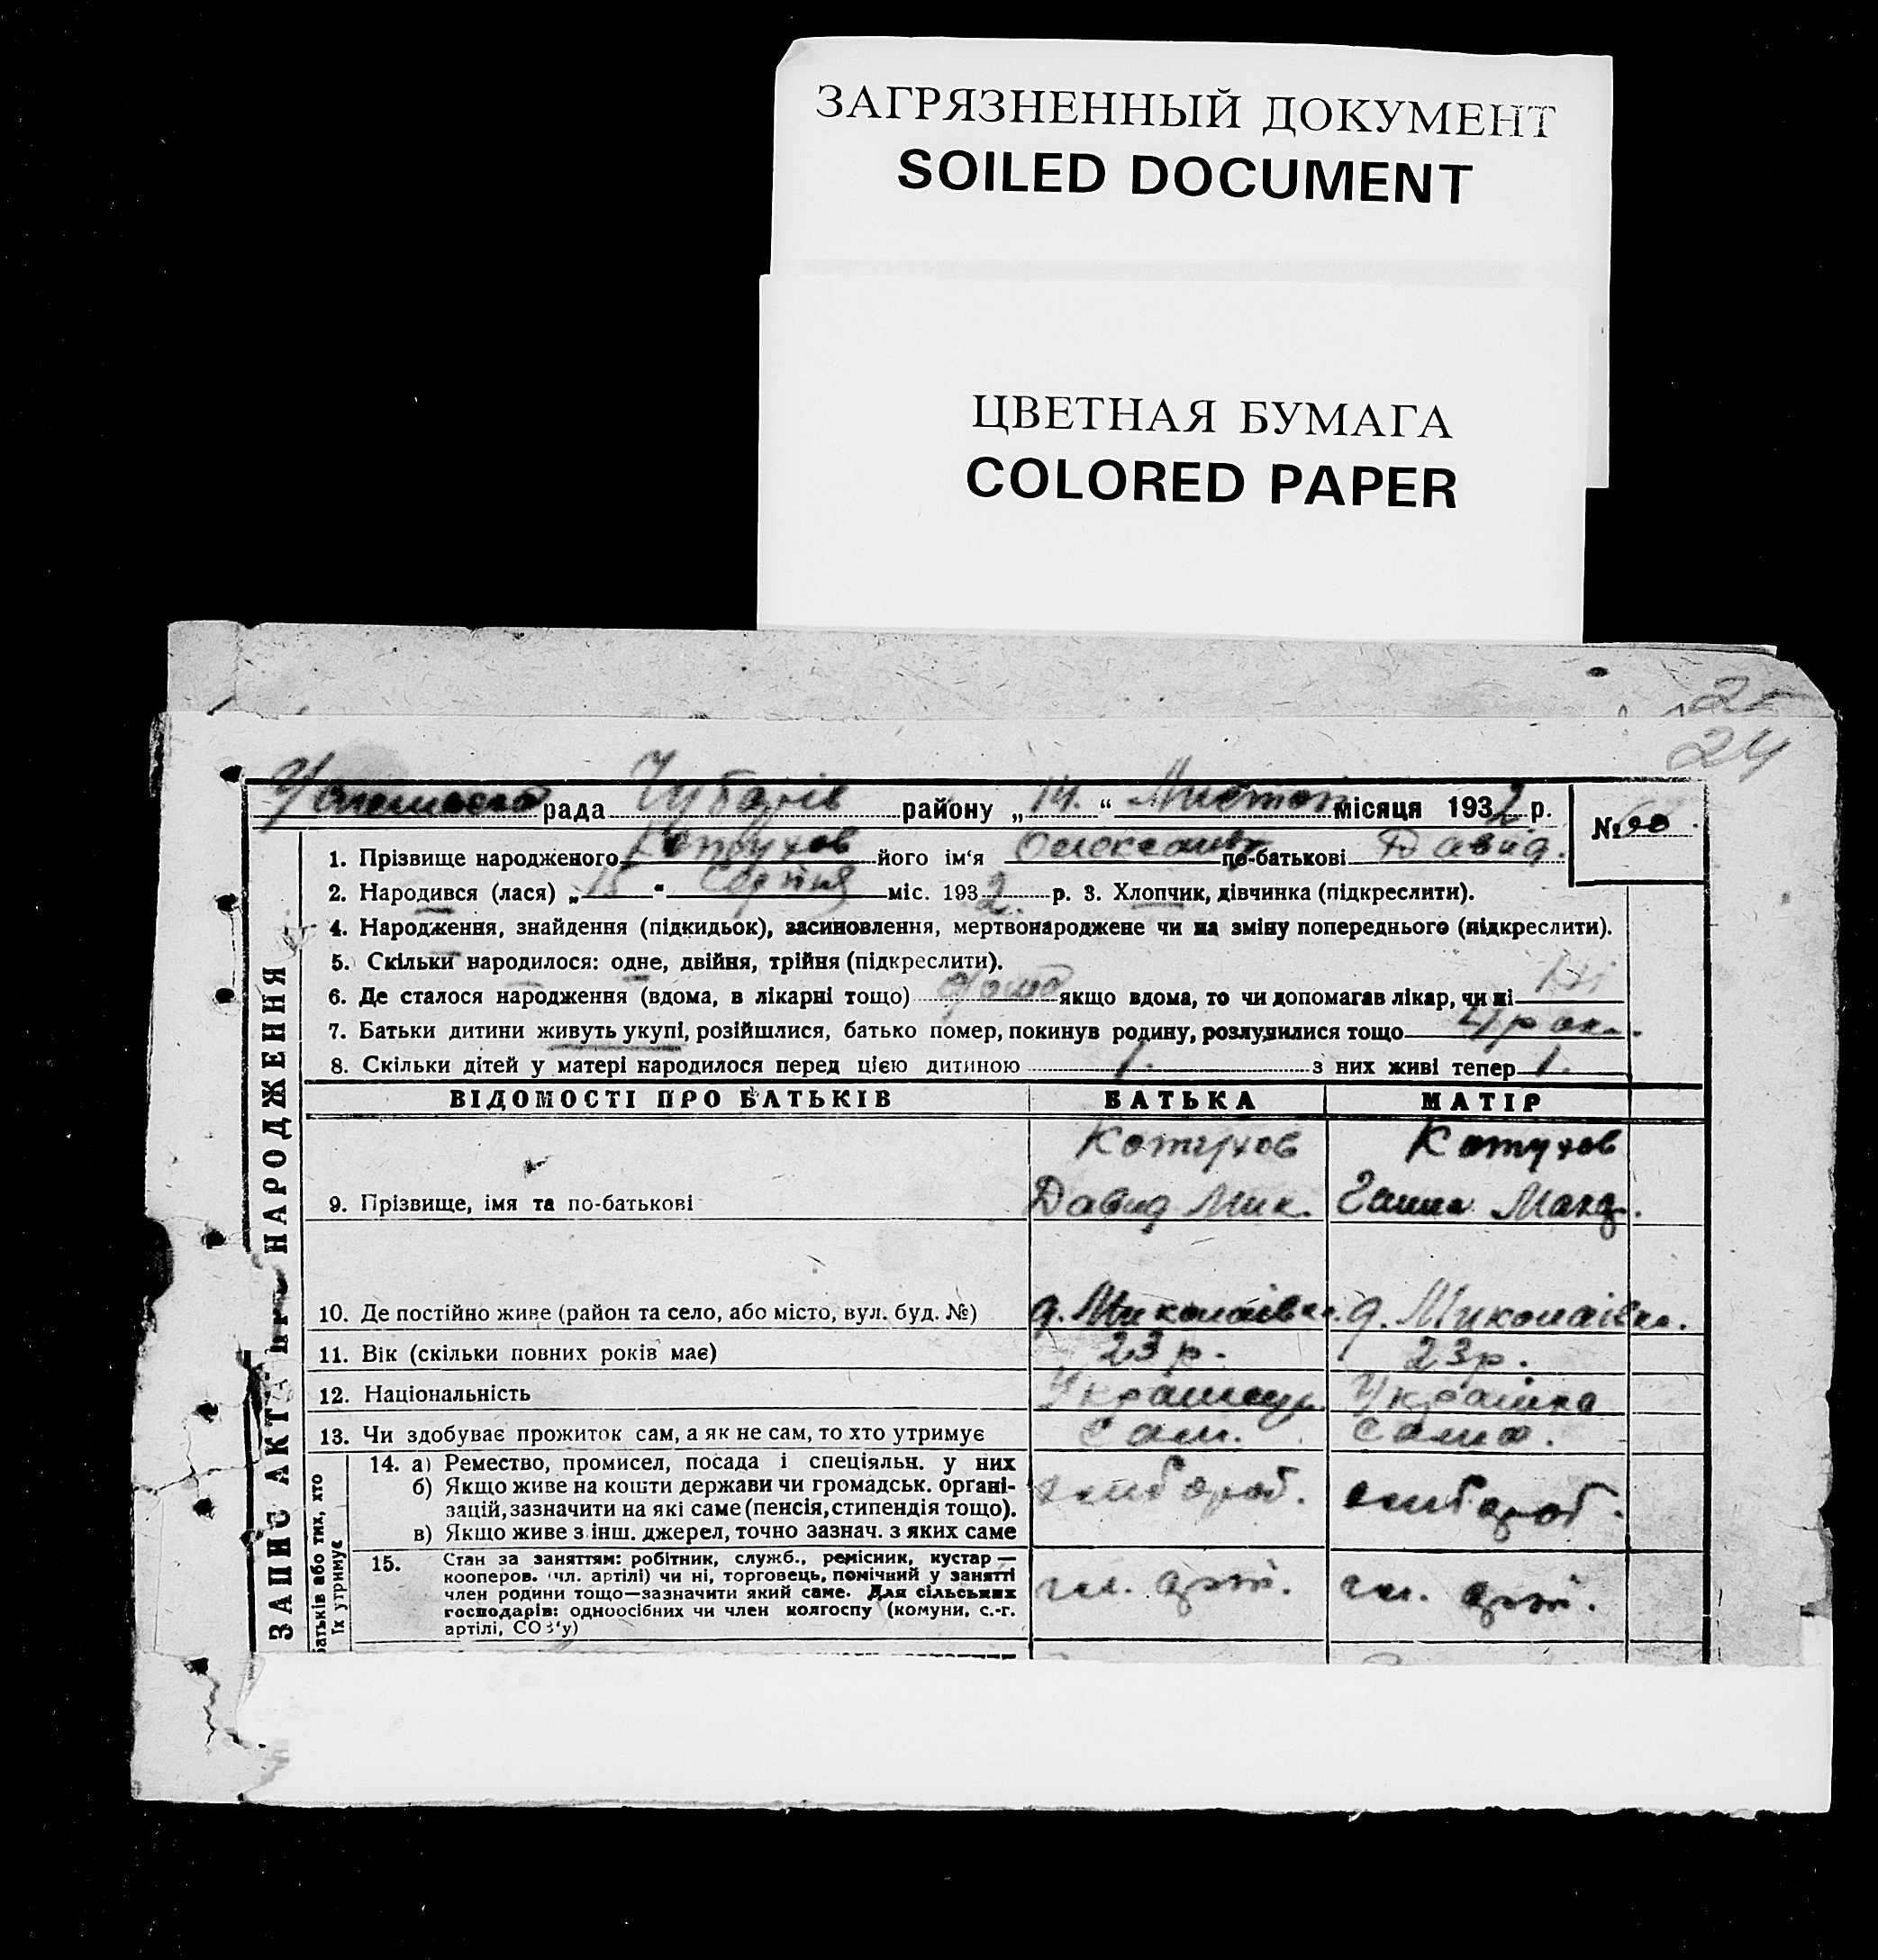 ЗАГРЯЗНЕННЫЙ ДОКУМЕНТ
SOILED DOCUMENT
ЦВЕТНАЯ БУМАГА
COLORED PAPER
24
рада Чубарів району „14.“ місяця 1932 р.
№
1. Прізвище народженого Котухов його ім'я Олександр по-батькові Давид.
2. Народився (лася) „15“ Серпня міс. 1932 р. 3. Хлопчик, дівчинка (підкреслити).
4. Народження, знайдення (підкидьок), засиновлення, мертвонароджене чи на зміну попереднього (підкреслити).
5. Скільки народилося: одне, двійня, трійня (підкреслити).
6. Де сталося народження (вдома, в лікарні тощо) якщо вдома, то чи допомагав лікар, чи ні Ні
7. Батьки дитини живуть укупі, розійшлися, батько помер, покинув родину, розлучилися тощо
8. Скільки дітей у матері народилося перед цією дитиною 1. з них живі тепер 1.
ВІДОМОСТІ ПРО БАТЬКІВ БАТЬКА МАТІР
Котухов Котухов
9. Прізвище, імя та по-батькові Давид Мик. Ганна
10. Де постійно живе (район та село, або місто, вул. буд. №) д. Миколаівка. д. Миколаівка.
11. Вік (скільки повних років має) 23 р. 23 р.
12. Національність Українець Українка
13. Чи здобуває прожиток сам, а як не сам, то хто утримує Сам. Сама.
14. а) Ремество, промисел, посада і спеціяльн. у них
б) Якщо живе на кошти держави чи громадськ. органі-
зацій, зазначити на які саме (пенсія, стипендія тощо).
в) Якщо живе з інш. джерел, точно зазнач. з яких саме
15. Стан за заняттям: робітник, служб., ремісник, кустар —
кооперов. (чл. артілі) чи ні, торговець, помічний у занятті
член родини тощо—зазначити який саме. Для сільських
господарів: одноосібних чи член колгоспу (комуни, с.-г.
артілі, СОЗ'у) чл. арт. чл. арт.
ЗАПИС АКТА ПРО НАРОДЖЕННЯ
батьків або тих, хто
їх утримує